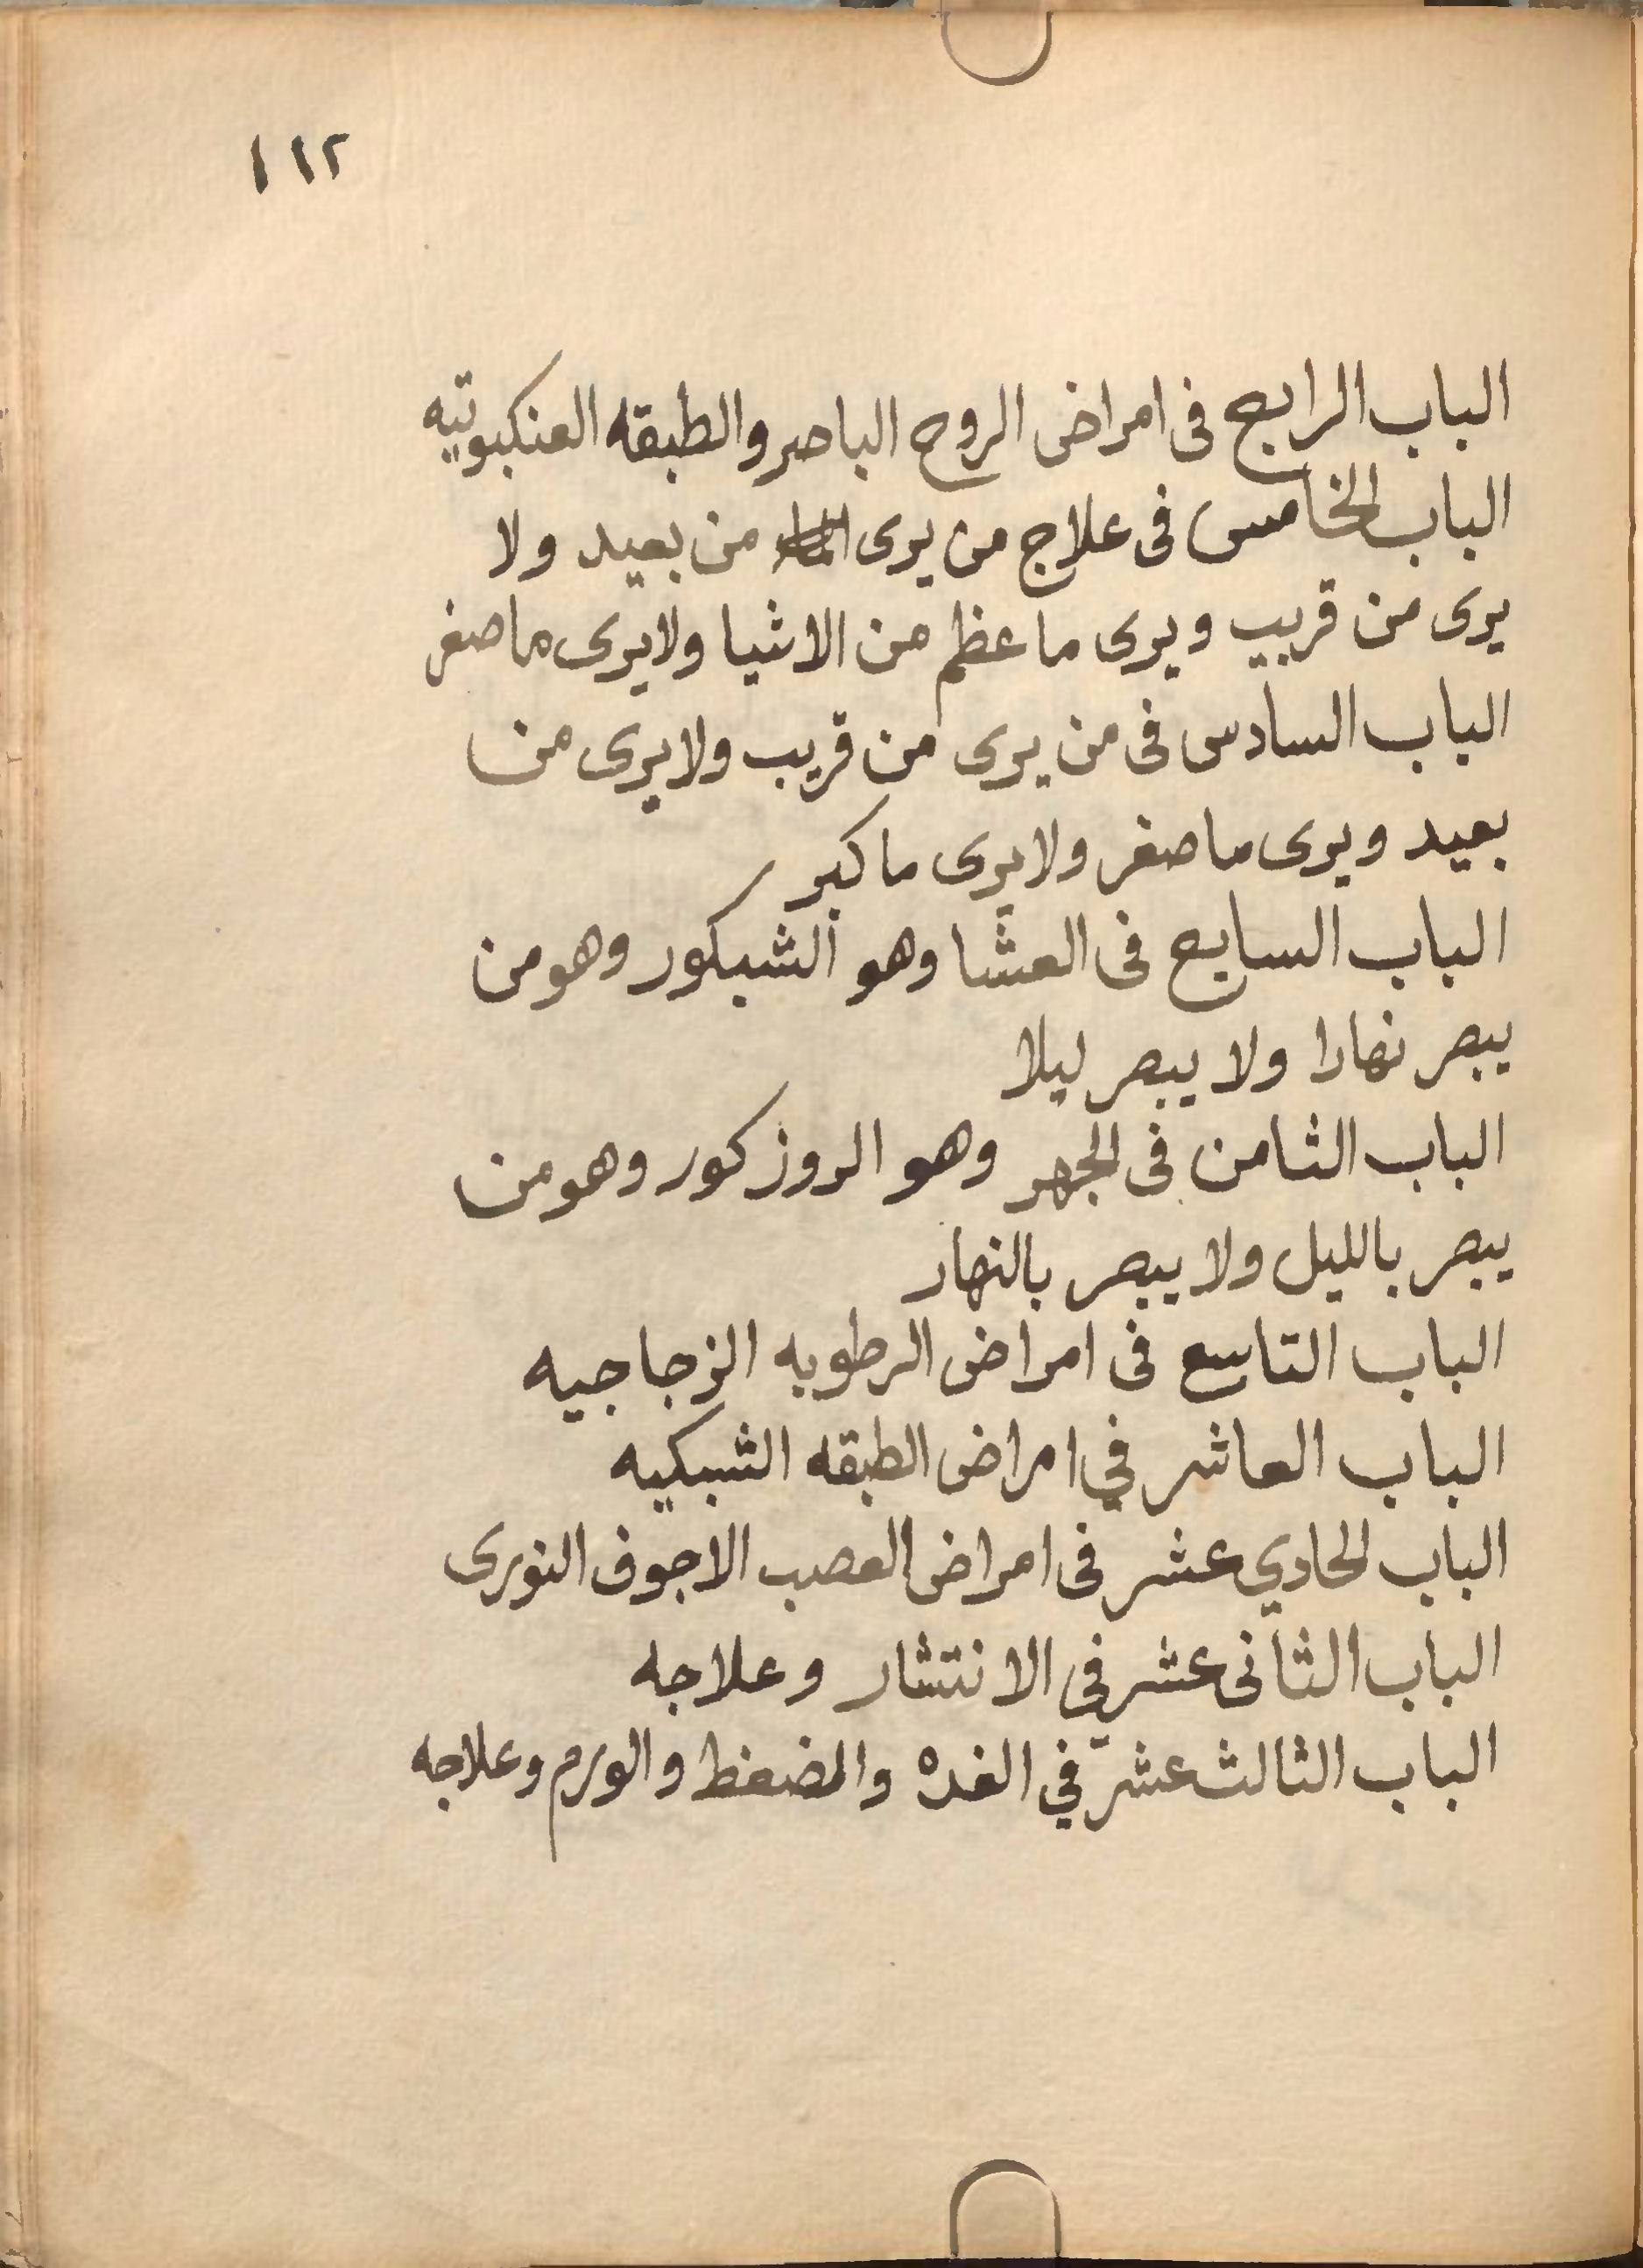 ١١٢
الباب الرابع فى امراض الروح الباصر والطبقه العنكبوتيه
الباب الخامس فى علاج من يرى من بعيد ولا
يرى من قريب ويرى ما عظم من الاشيا ولا يرى ما صغر
الباب السادس فى من يرى من قريب ولا يرى من
بعيد ويرى ما صغر ولا يرى ما كبر
الباب السابع فى العشا وهو الشبكور وهو من
يبصر نهارا ولا يبصر ليلا
الباب الثامن فى الجهر وهو الروز كور وهو من
يبصر بالليل ولا يبصر بالنهار
الباب التاسع فى امراض الرطوبه الزجاجيه
الباب العاشر في امراض الطبقه الشبكيه
الباب الحادي عشر فى امراض العصب الاجوف النورى
الباب الثانى عشر في الانتشار وعلاجه
الباب الثالث عشر في الغده والمضغط والورم وعلاجه